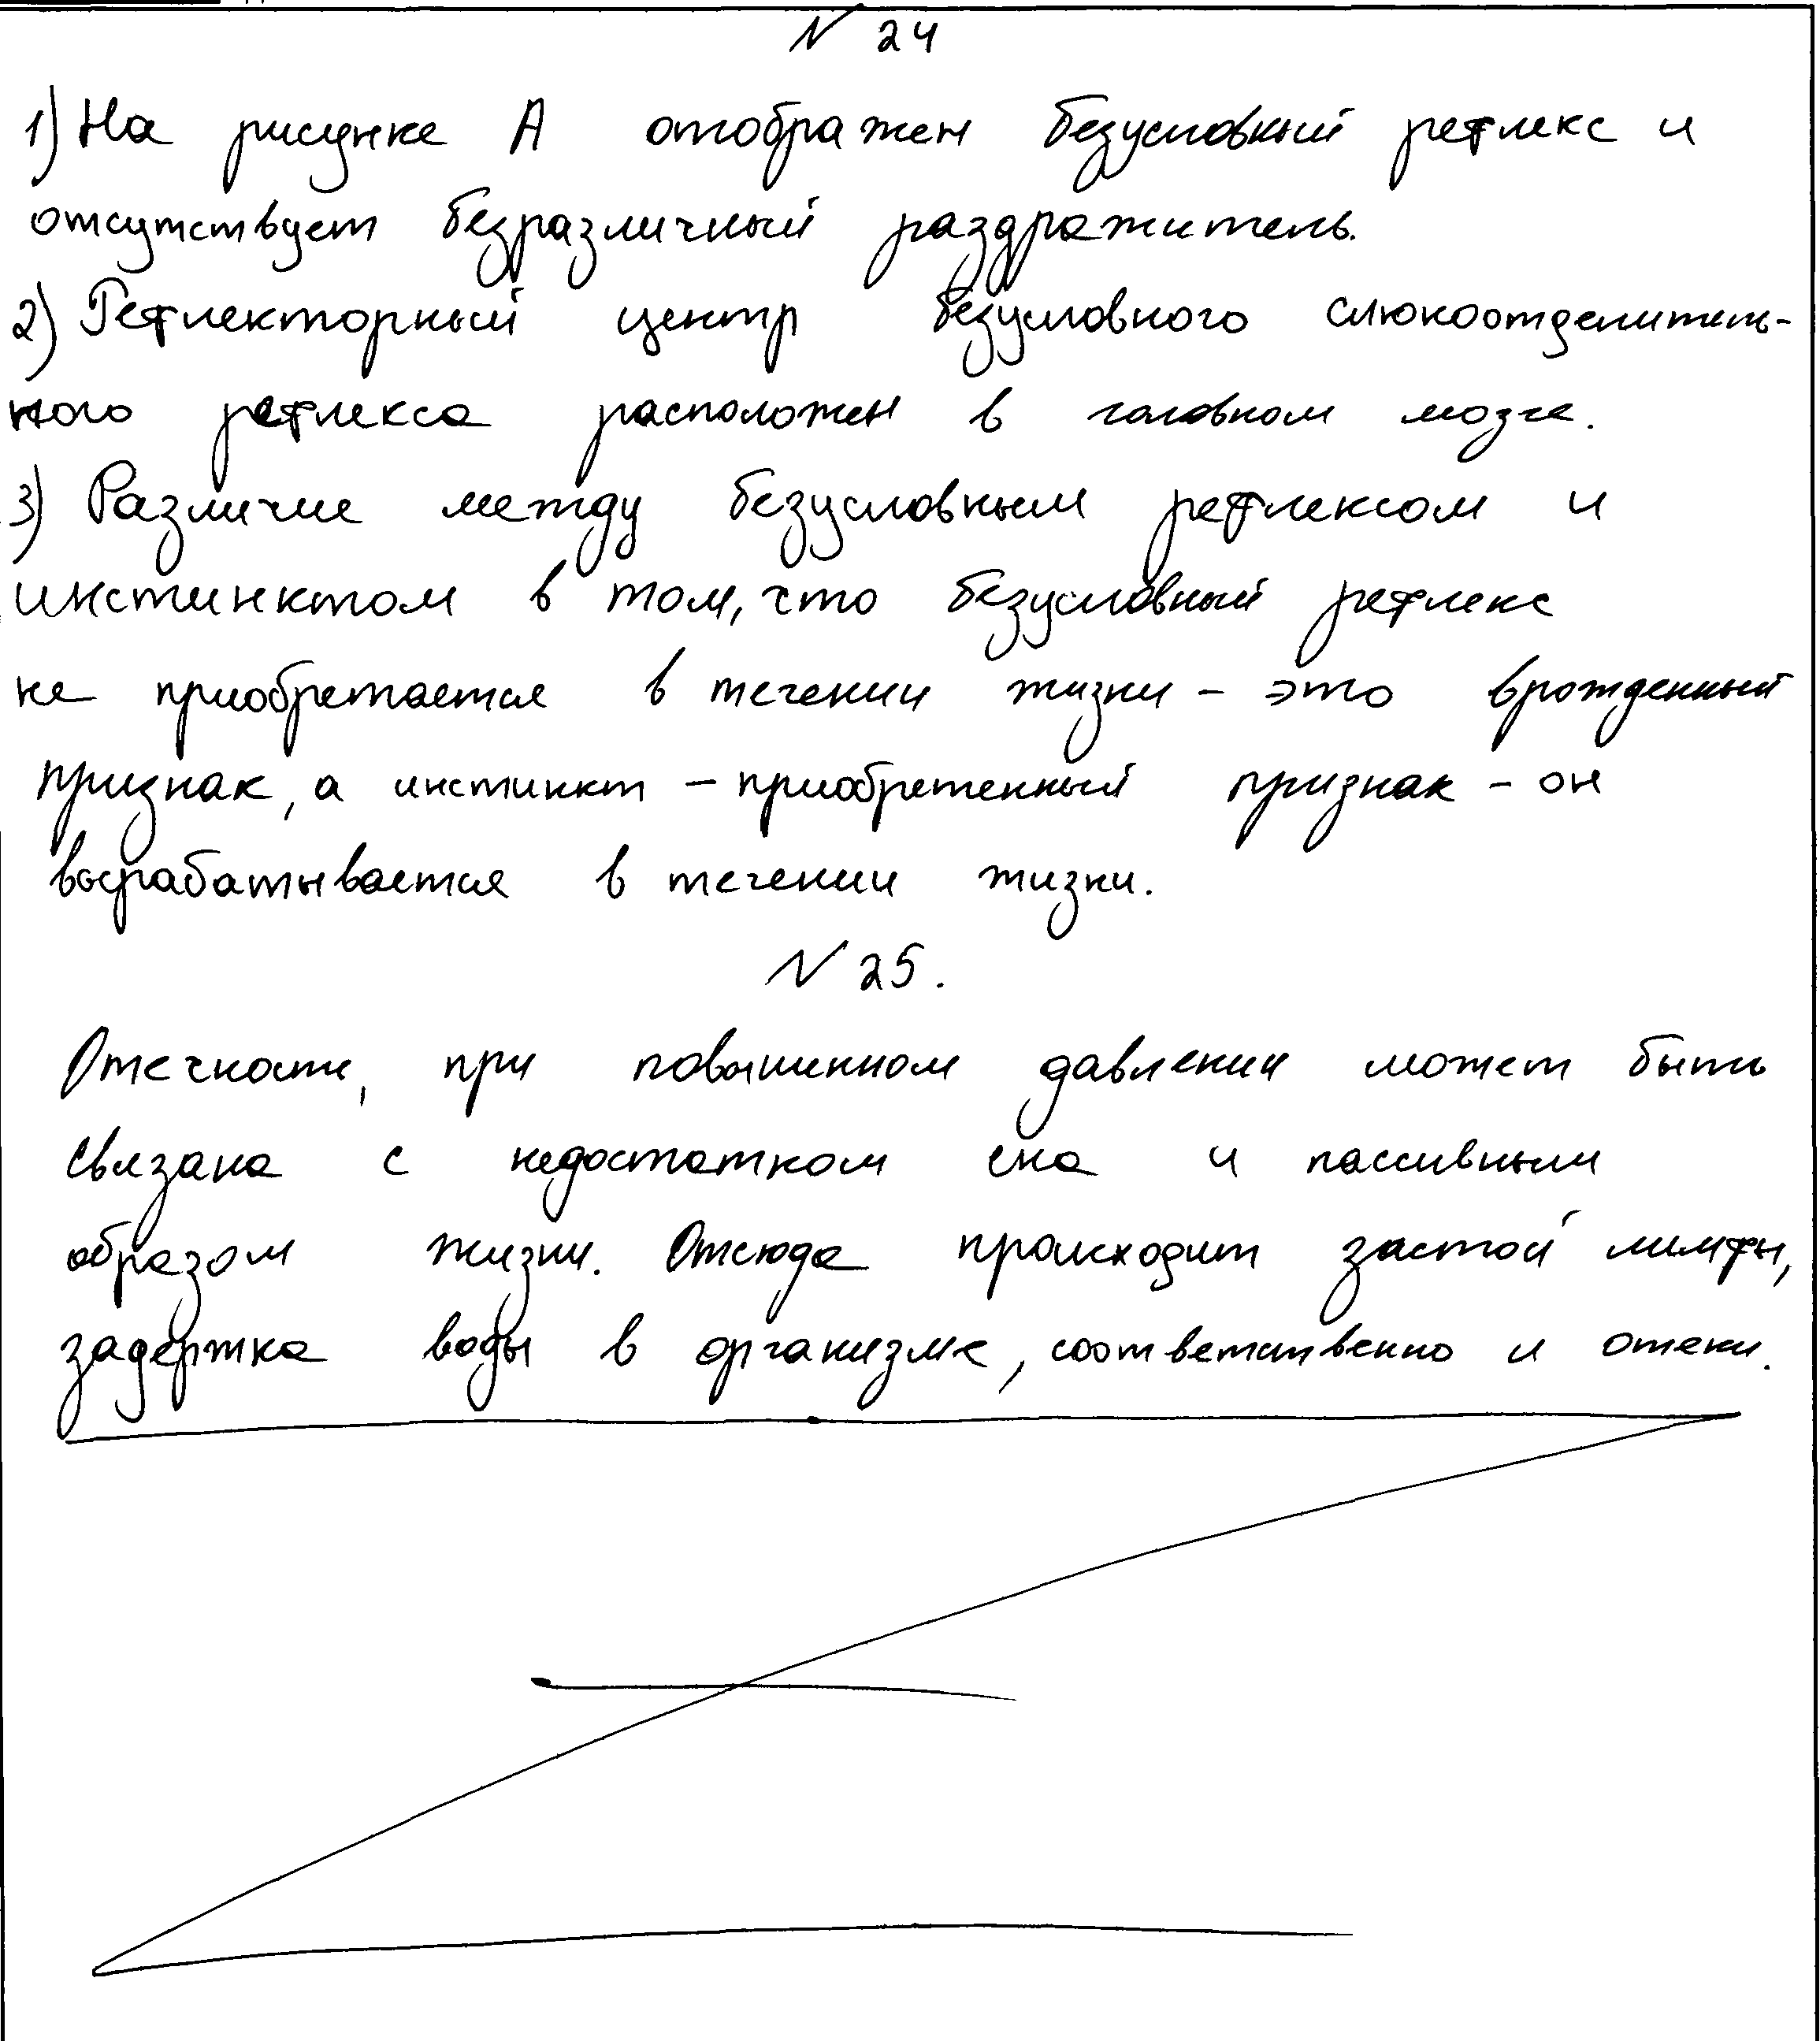 N 24
1) На рисунке А отображен безусловный рефлекс и
отсутствует безразличный раздражитель.
2) Рефлекторный центр безусловного слюноотделитель-
ного рефлекса расположен в головном мозге.
3) Различие между безусловным рефлексом и
инстинктом в том, что безусловный рефлекс
не приобретается в течении жизни – это врожденный
признак, а инстинкт – приобретенный признак – он
вырабатывается в течении жизни.
N 25.
Отечность, при повышенном давлении может быть
связана с недостатком сна и пассивным
образом жизни. Отсюда происходит застой лимфы,
задержка воды в организме, соответственно и отеки.